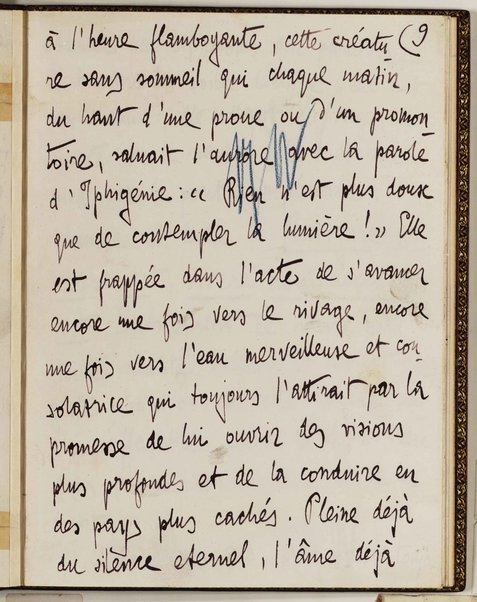 à l'heure flamboyante, cette créatu (9
re sans sommeil qui chaque matin,
du haut d'une proue ou d'un promon
toire, saluait l'aurore avec la parole
d'Iphigénie : « Rien n'est plus doux
que de contempler la lumière ! » Elle
est frappée dans l'acte de s'avancer
encore une fois vers le rivage, encore
une fois vers l'eau merveilleuse et con-
solatrice qui toujours l'attirait par la
promesse de lui ouvrir des visions
plus profondes et de la conduire en
des pays plus cachés. Pleine déjà
du silence eternel, l'âme déjà